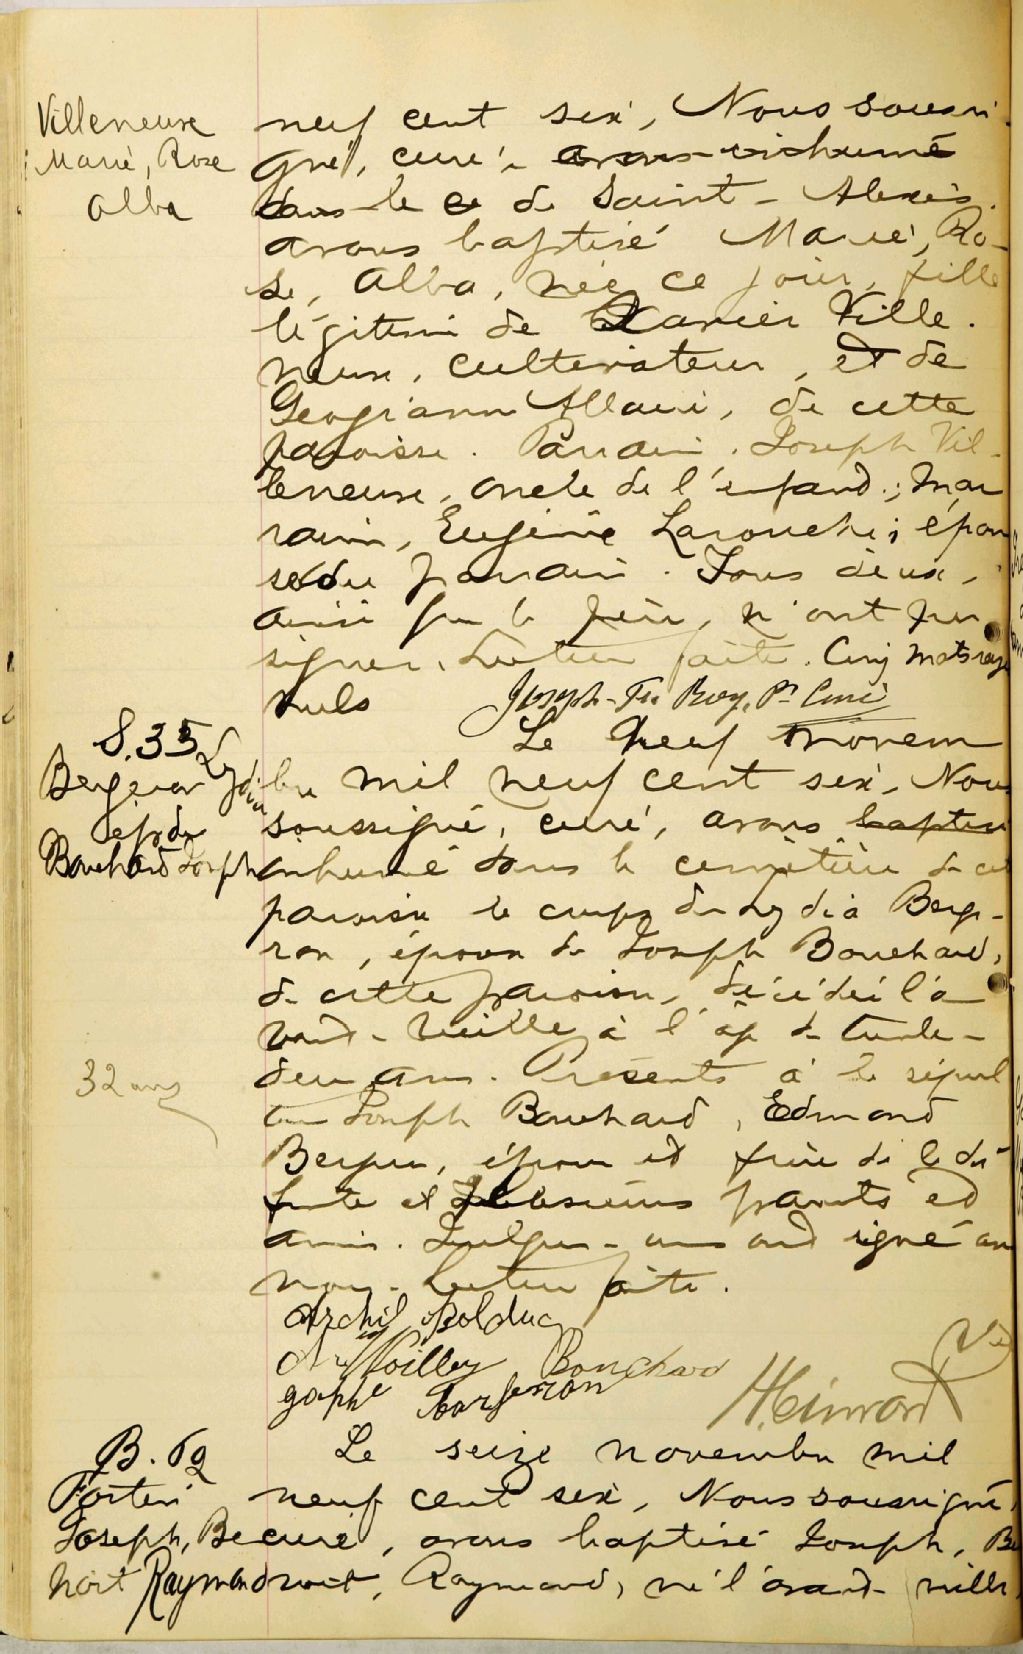 Villeneuve
Marie, Rose
Alba
neuf cent six, Nous soussi-
gné, curé, avons inhumé
dans le ce de Saint-Alexis.
avons baptisé Marie, Ro-
se, Alba, née ce jour, fille
légitime de Xavier Ville-
neuve, cultivateur, et de
Georgianna Allaire, de cette
paroisse. Parrain, Joseph Vil-
leneuve, oncle de l'enfant; mar
raine, Eugénie Larouche, épou
se du parrain. Tous deux,
ainsi que le père, n'ont pu
signer. Lecture faite. Cinq mots rayé
nuls
Joseph Roy, Ptr Curé
S. 35
Bergeron Lydia
ép. de
Bouchard Joseph
32 ans
Le neuf novem
bre mil neuf cent six, Nous
soussigné, curé, avons baptisé
inhumé dans le cimetière de cet
paroisse le corps de Lydia Berge-
ron, épouse de Joseph Bouchard,
de cette paroisse, décédée l'a
vant-veille à l'âge de trente-
deux ans. Présents à la sépul
ture Joseph Bouchard, Edmond
Bergeron, époux et frère de la dé
funte et plusieurs parents et
amis. Quelques-uns ont signé avec
nous. Lecture faite.
Archil Bolduc
Bouchard
B. 62
Fortin
Joseph, Be
noit Raymond
Le seize novembre mil
neuf cent six, Nous soussigné,
curé, avons baptisé Joseph, Be
noit, Raymond, né l'avant-veille,